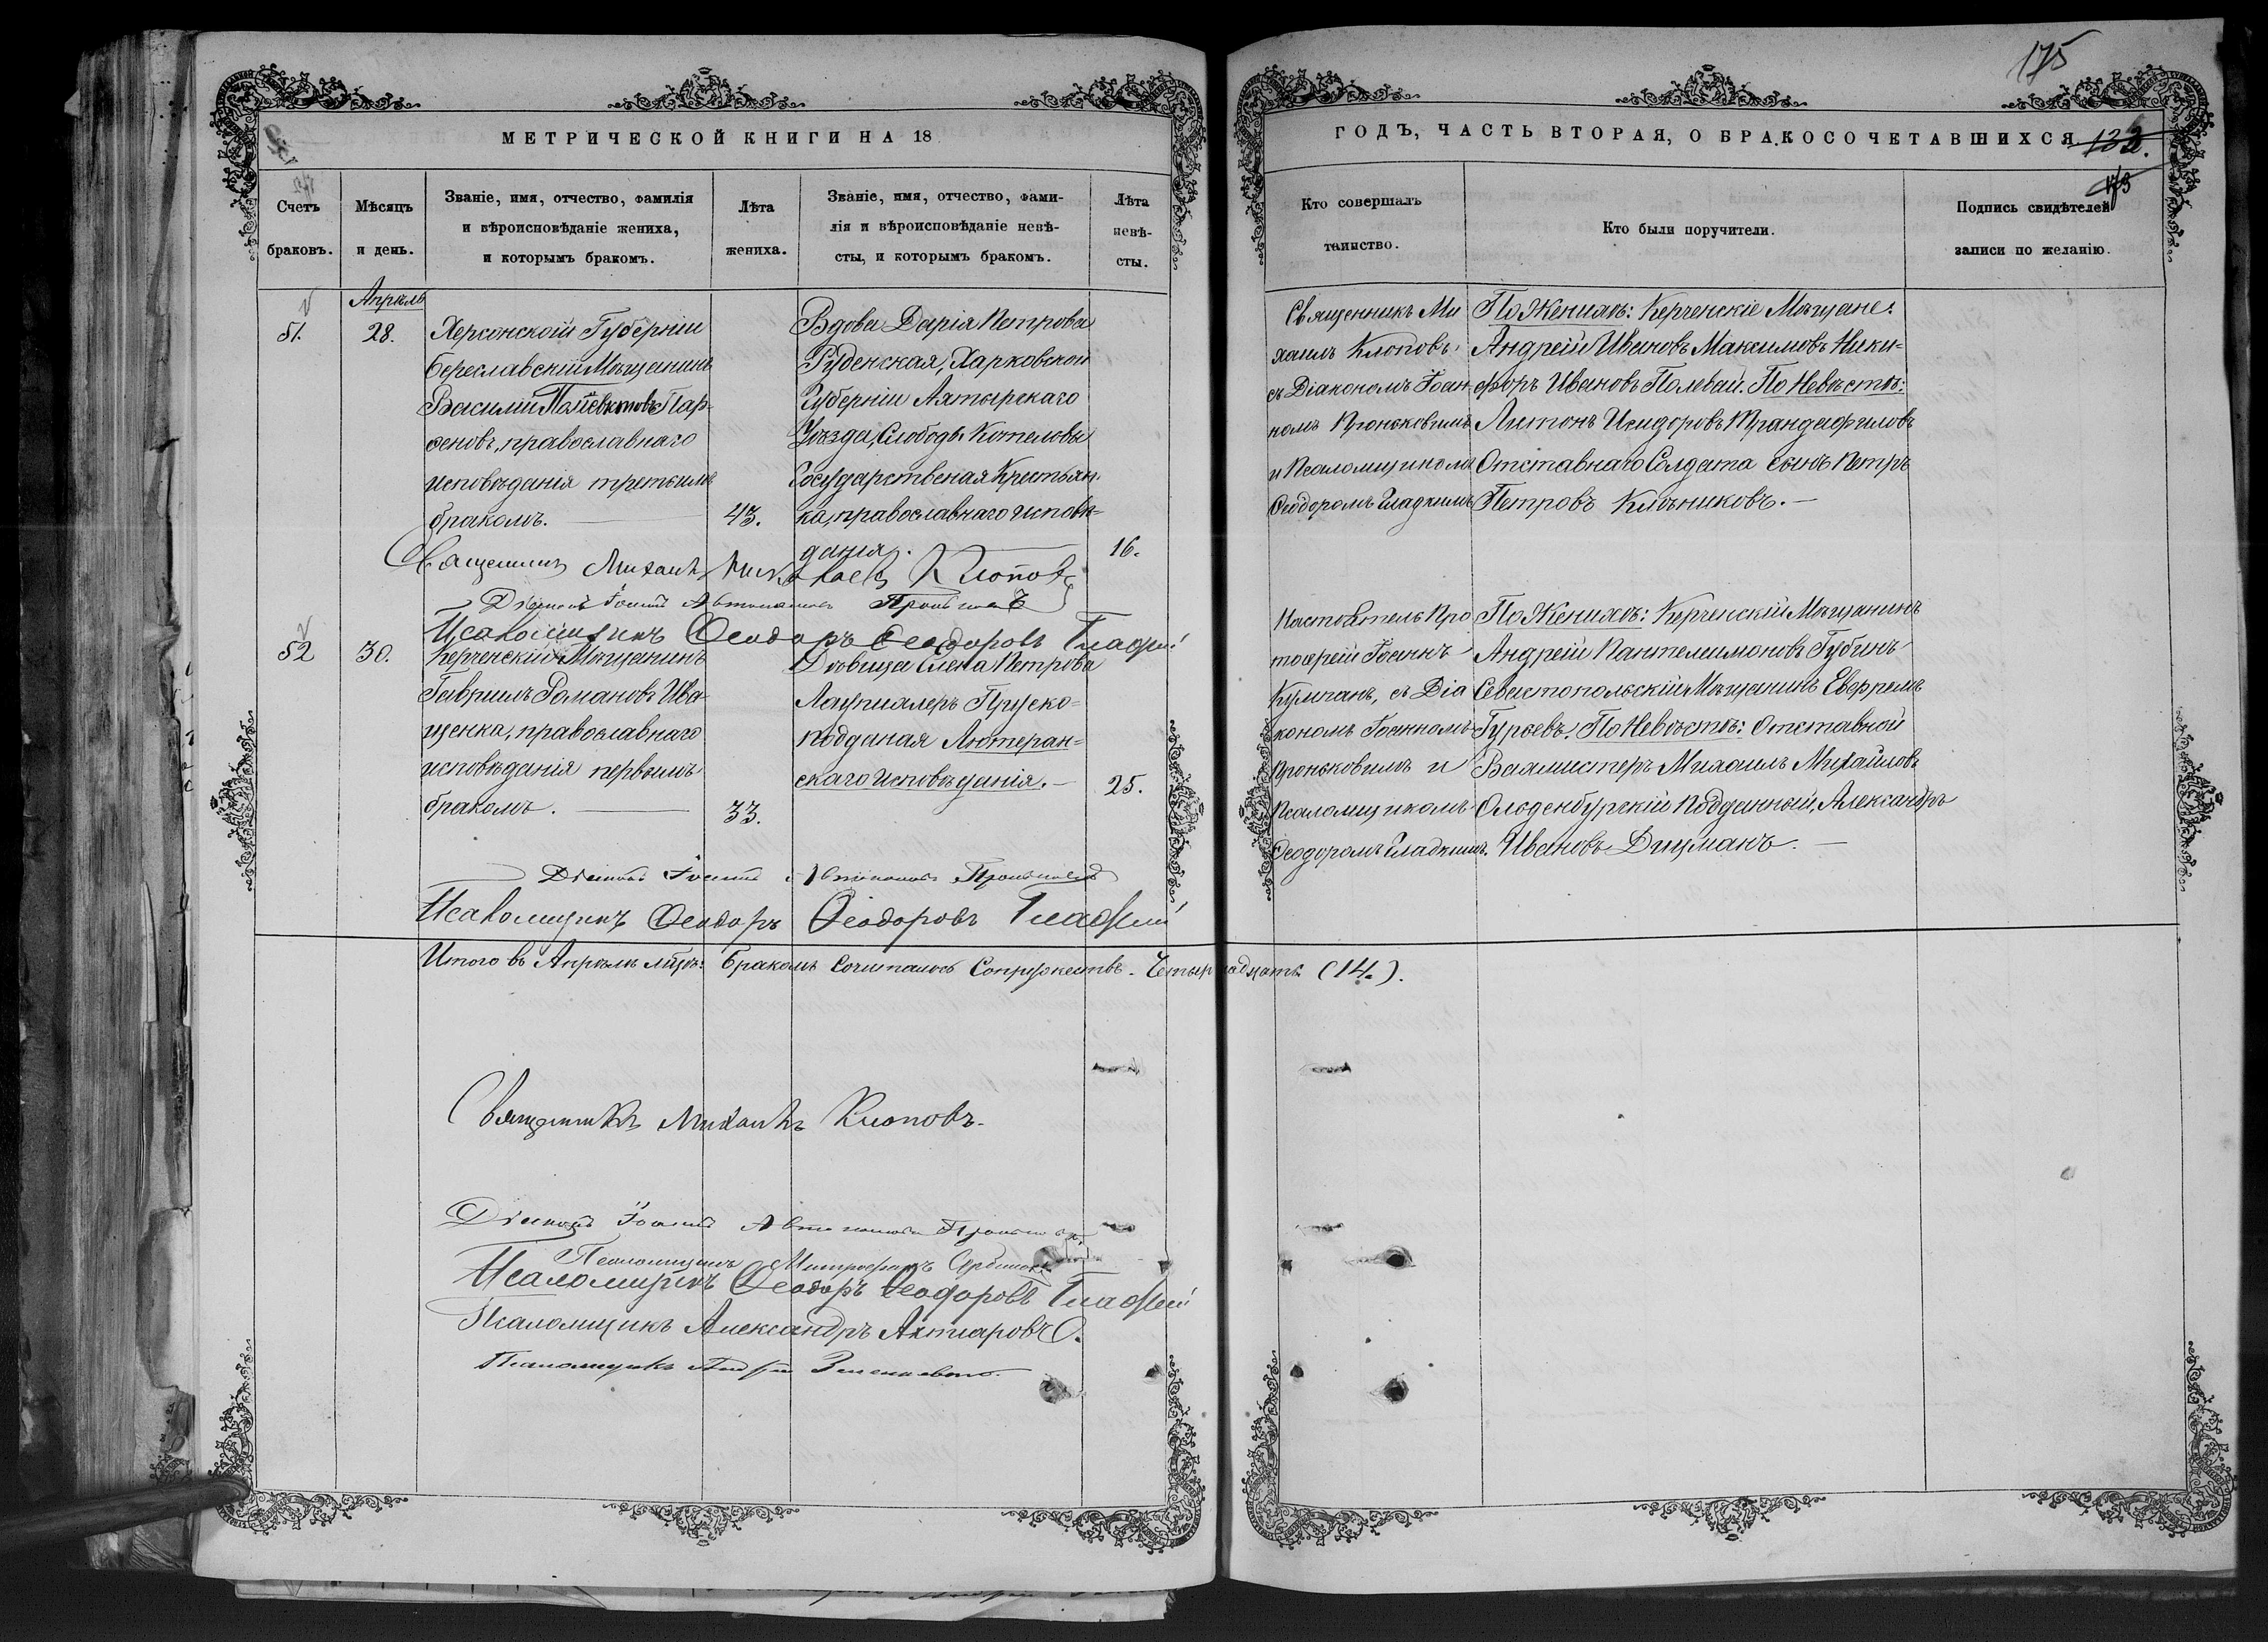 175
МЕТРИЧЕСКОЙ КНИГИ НА 18
ГОДЪ, ЧАСТЬ ВТОРАЯ, О БРАКОСОЧЕТАВШИХСЯ
132.
173
Счетъ
браковъ.
Мѣсяцъ
и день.
Званіе, имя, отчество, фамилія
и вѣроисповѣданіе жениха,
и которымъ бракомъ.
Лѣта
жениха.
Званіе, имя, отчество, фами-
лія и вѣроисповѣданіе невѣ-
сты, и которымъ бракомъ.
Лѣта
невѣ-
сты.
Кто совершалъ
таинство.
Кто были поручители.
Подпись свидѣтелей
записи по желанію.
Апрѣль
51.
28.
Херсонской Губерніи
береславскій Мѣщанинъ
Василій Полѣвктовъ Пар-
феновъ, православнаго
исповѣданія третьимъ
бракомъ.
43.
Вдова Дарія Петрова
Руденская, Харковской
Губерніи Ахтырскаго
Уѣзда, Слободы Котельвы
Государственая Крестьян-
ка, православнаго исповѣ-
данія.
16.
Священникъ Ми
хаилъ Клоповъ
съ Діакономъ Іоан-
номъ Проньковимъ
и Псаломщикомъ
Ѳеодоромъ Гладкимъ
По Женихѣ: Керченскіе Мѣщане:
Андрей Ивановъ Максимовъ Ники-
форъ Ивановъ Полевай. По Невѣстѣ:
Антонъ Исидоровъ Трандафиловъ
Отставнаго Солдата сынъ Петръ
Петровъ Клѣниковъ.
Священникъ Михаилъ Николаевъ Клоповъ
Діаконъ Іоаннъ Автономовъ
Псаломщикъ Ѳеодоръ Ѳеодоровъ Гладкій
52
30.
Керченскій Мѣщанинъ
Гавриилъ Романовъ Ива-
щенка, православнаго
исповѣданія первымъ
бракомъ.
33.
Дѣвица Елена Петрова
Лаупиалеръ Пруско-
подданая Лютеран-
скаго исповѣданія.
25.
Настоятель Про
тоіерей Іоаннъ
Кумпанъ, съ Діа
кономъ Іоанномъ
Проньковимъ и
Псаломщикомъ
Ѳеодоромъ Гладкимъ.
По Женихѣ: Керченскій Мѣщанинъ
Андрей Пантелеимоновъ Губинъ
Севастопольскій Мѣщанинъ Евфремъ
Гурьевъ. По Невѣстѣ: Отставной
Вахмистеръ Михаилъ Михайловъ
Ольденбургскій подданный, Александръ
Ивановъ Дицманъ.
Діаконъ Іоаннъ Автономовъ
Псаломщикъ Ѳеодоръ Ѳеодоровъ Гладкій
Итого въ Апрѣлѣ мцѣ: бракомъ Сочиталось Сопружествъ. Четырнадцать (14.).
Священникъ Михаилъ Клоповъ.
Діаконъ Іоаннъ Автономовъ
Псаломщикъ Митрофанъ
Псаломщикъ Ѳеодоръ Ѳеодоровъ Гладкій
Псаломщикъ Александръ Ахтіаровъ.
Псаломщикъ Андрей